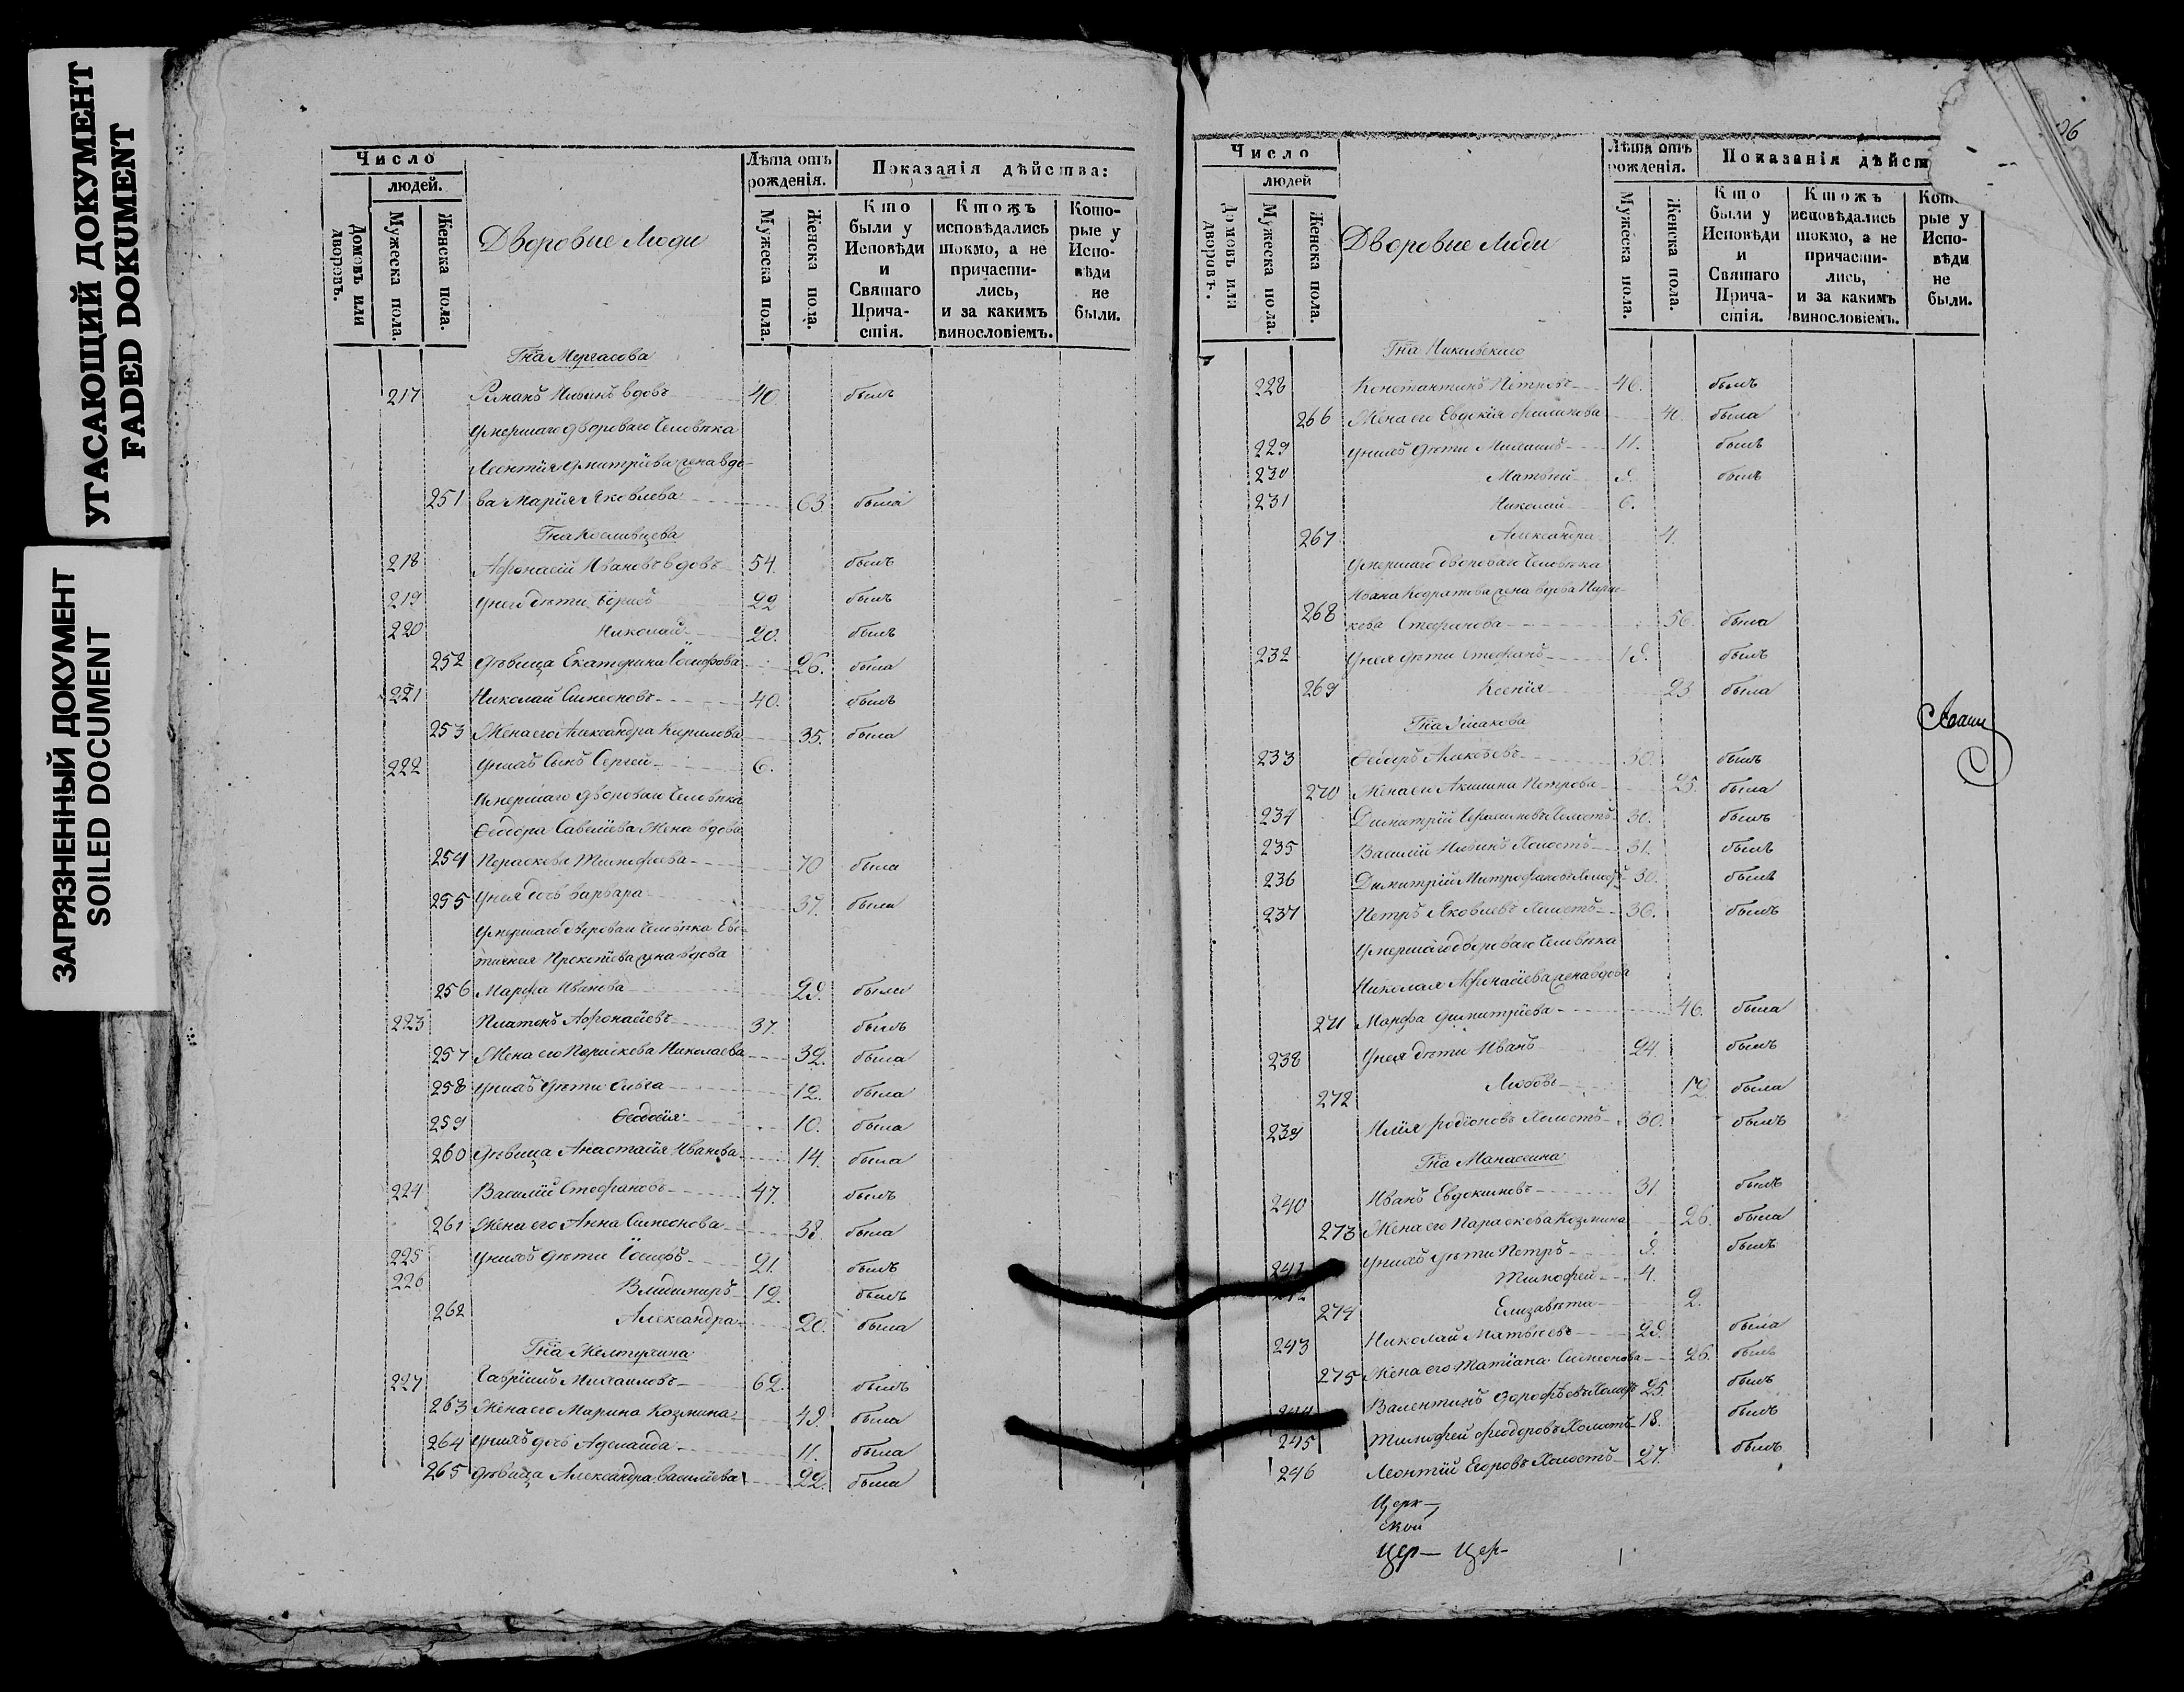 УГАСАЮЩИЙ ДОКУМЕНТ
FADED DOKUMENT
ЗАГРЯЗНЕННЫЙ ДОКУМЕНТ
SOILED DOCUMENT
Число
людей.
Домовъ или дворовъ.
Мужеска пола.
Женска пола.
Дворовые Люди
Лѣта отъ рожденія.
Мужеска пола.
Женска пола.
Показанія дѣйства:
Кто были у Исповѣди и Святаго Прича-стія.
Ктожъ исповѣдались токмо, а не причасти-лись, и за какимъ винословіемъ.
Кото-рые у Испо-вѣди не были.
Гна Мергасова
217 Романъ вдовъ 40. былъ
умершаго двороваго Человѣка
Леонтія Дмитріева жена вдо-
251 ва Марія Яковлева 63 была
Гна
218 Афонасій Ивановъ вдовъ 54. былъ
219 у него дѣти 22 былъ
220 Николай 20. былъ
252 дѣвица Екатерина Іосифова 26. была
221 Николай Симеоновъ 40. былъ
253 Жена его Александра Кирилова 35. была
222 у нихъ Сынъ Сергей 6.
Умершаго Двороваго Человѣка
Ѳеодора Савелїева Жена вдова
254 Параскева Тимофеева 70 была
255 у нея дочь Варвара 37. была
умершаго двороваго Человѣка Евс-
тигнея Прокопїева жена вдова
256 Марфа Иванова 29. была
223 Платонъ Афонасїевъ 37. былъ
257 Жена его Параскева Николаева 32. была
258 у нихъ дѣти 12. была
259 Ѳеодосїя 10. была
260 дѣвица Анастасїя Иванова 14. была
224 Василїй Стефановъ 47. былъ
261 Жена его Анна Симеонова 38. была
225 у нихъ дѣти Іосифъ 21. былъ
226 Владимиръ 12. былъ
262 Александра 20. была
Гна Желтухина
227 Гаврїилъ Михаиловъ 62. былъ
263 Жена его Марина Козмина 49. была
264 у нихъ дочь Аделаида 11. была
265 дѣвица Александра Василїева 22. была
26
Число
людей
Домовъ или дворовъ.
Мужеска пола.
Женска пола.
Дворовые Люди
Лѣта отъ рожденія.
Мужеска пола.
Женска пола.
Показанія дѣйст
Кто были у Исповѣди и Святаго Прича-стія.
Ктожъ исповѣдались токмо, а не причасти-лись, и за какимъ винословіемъ.
Кото рые у Испо-вѣди не были.
Гна Никольскаго
228 Константинъ Петровъ 46. былъ
266 Жена его Евдокїя Филипова 40. была
229 у нихъ дѣти Михаилъ 11. былъ
230 Матвѣй 9. былъ
231 Николай 6.
267 Александра 4.
умершаго двороваго Человѣка
Ивана Кодратова жена вдова Парас-
268 кева Стефанова 56. была
232 у нея дѣти Стефанъ 19. былъ
269 Ксенїя 23 была
Гна
233 Ѳеодоръ Алексѣевъ 30. былъ
270 Жена его Акилина Петрова 25. была
234 Димитрїй Холостъ 30. былъ
235 Василїй Холостъ 31. былъ
236 Димитрїй Митрофановъ Холостъ 30. былъ
237 Петръ Яковлевъ Холостъ 36. былъ
умершаго двороваго Человѣка
Николая Афонасїева жена вдова
271 Марфа Димитрїева 46. была
238 у нея дѣти Иванъ 24. былъ
272 Любовь 17 была
239 Илїя Родїоновъ Холостъ 30. былъ
Гна Манасеина
240 Иванъ Евдокимовъ 31 былъ
273 Жена его Параскева Козмина 26. была
241 у нихъ дѣти Петръ 9. былъ
242 Тимофей 4.
274 Елизавета 2.
243 Николай Матвѣевъ 29. была
275 Жена его Татїана Симеонова 26. былъ
244 Валентинъ Дорофѣевъ Холостъ 25. былъ
245 Тимофей Феодоровъ Холостъ 18. былъ
246 Леонтїй Егоровъ Холостъ 27. былъ
Церк-
ской
Цер- Цер-